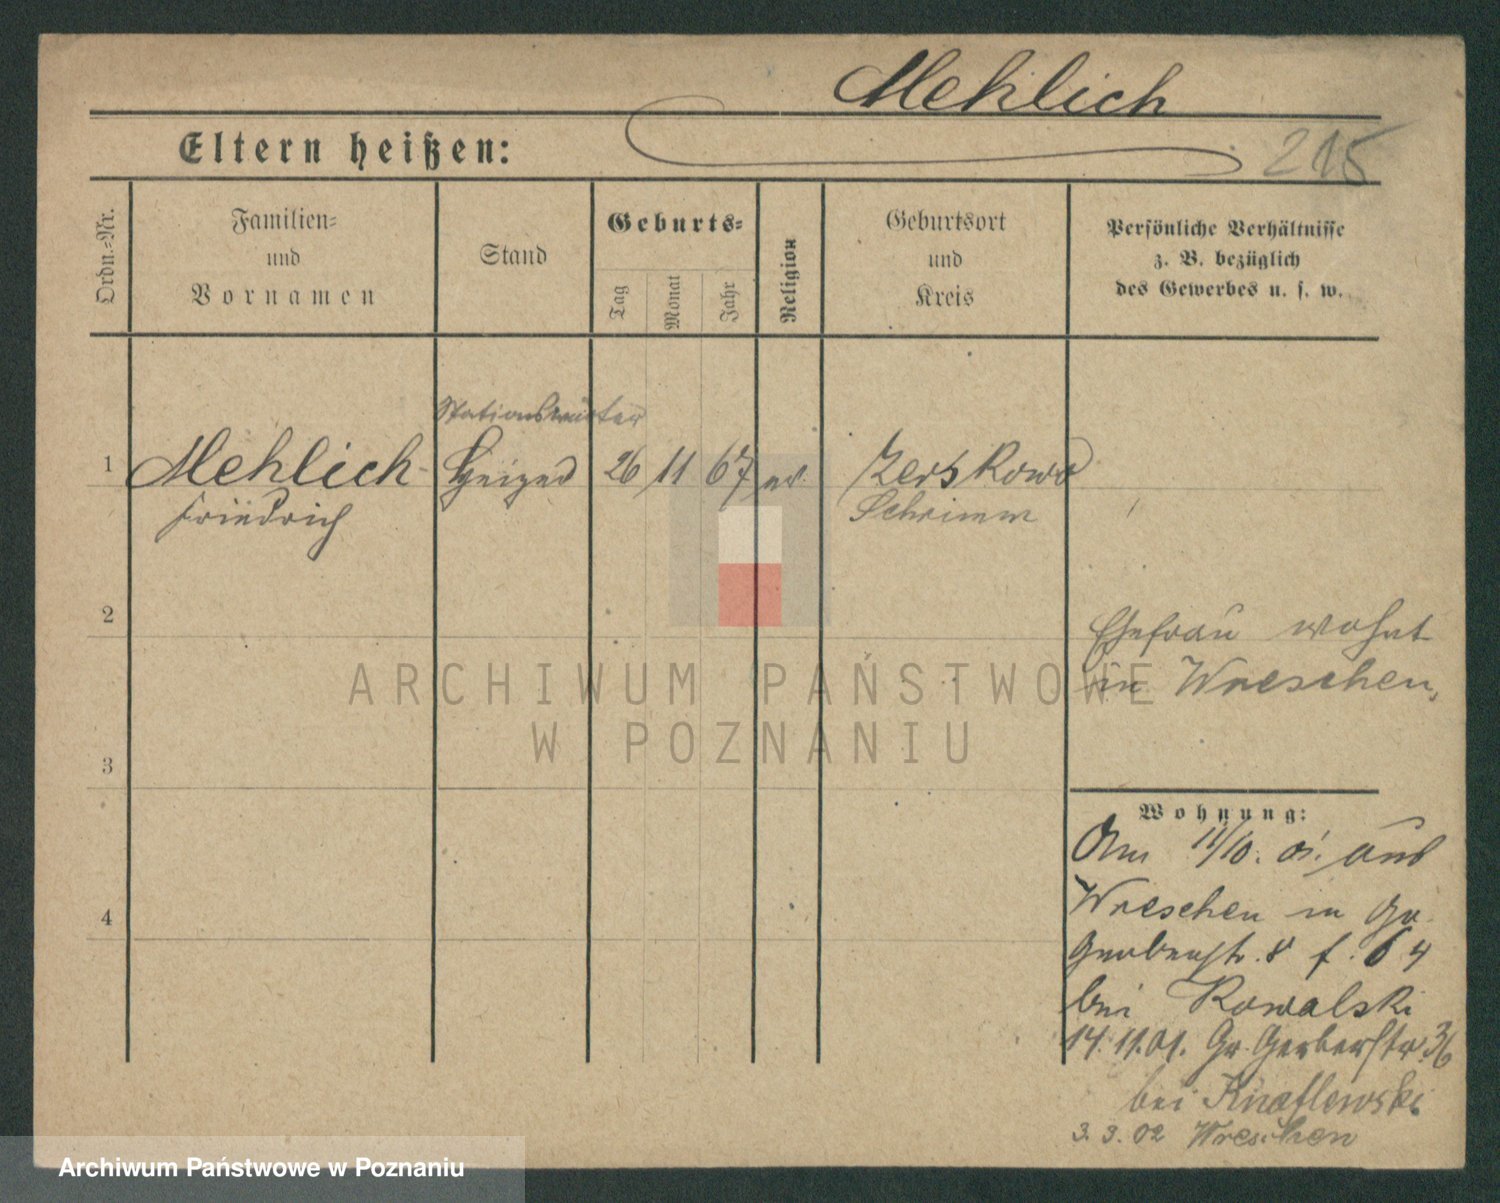 Mehlich
Eltern heißen:
215
Ordn.-Nr.
Familien-
und
Vornamen
Stand
Geburts-
Tag
Monat
Jahr
Religion
Geburtsort
und
Kreis
Persönliche Verhältnisse
z. B. bezüglich
des Gewerbes u. s. w.
Stationswärter
1 Mehlich Heizer 26 11 67 ev. Zerskowo
Friedrich Schrimm
2
Ehefrau wohnt
in Wreschen,
ARCHIWUM PAŃSTWOWE
W POZNANIU
3
Wohnung:
Am 11/10. 01. aus
4
Wreschen in Gr.
Gerberstr. 8 f. 64
bei Kowalski
14.11.01. Gr. Gerberstr. 36
bei Knaflewski
3.3.02 Wreschen
Archiwum Państwowe w Poznaniu